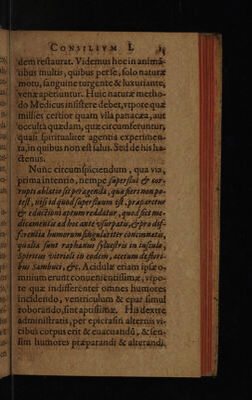 CONSILIVM I.
dem restaurat. Videmus hoc in animã-
tibus multis, quibus per se, solo naturæ
motu, sanguine turgente & luxuriante,
venæ aperiuntur. Huic naturæ metho-
do Medicus insistere debet, vtpote quæ
millies certior quam vlla panacæa, aut
occulta quædam, quæ circumferuntur,
quasi spiritualiter agentia experimen-
ta, in quibus non est salus. Sed de his ha-
ctenus.
Nunc circumspiciendum, qua via,
prima intentio, nempe superflui & cor-
rupti ablatio sit peragenda, quæ fieri non po-
test, nisi id quod superfluum est, præparetur
& eductioni aptum reddatur, quod fiet me-
dicamentis ad hoc ante vsurpatis, & pro dif-
ferentia humorum singulariter concinnatis,
qualia sunt raphanus syluestris in iusculo,
spiritus vitrioli in eodem, acetum de flori-
bus sambuci, &c. Acidulæ etiam ipsæ o-
mnium erunt conuenientissimæ, vtpo-
te quæ indifferenter omnes humores
incidendo, ventriculum & epar simul
roborando, sint aptissimæ. His dextre
administratis, per epicrasin alternis vi-
cibus corpus erit & euacuandũ, & sen-
sim humores præparandi & alterandi,